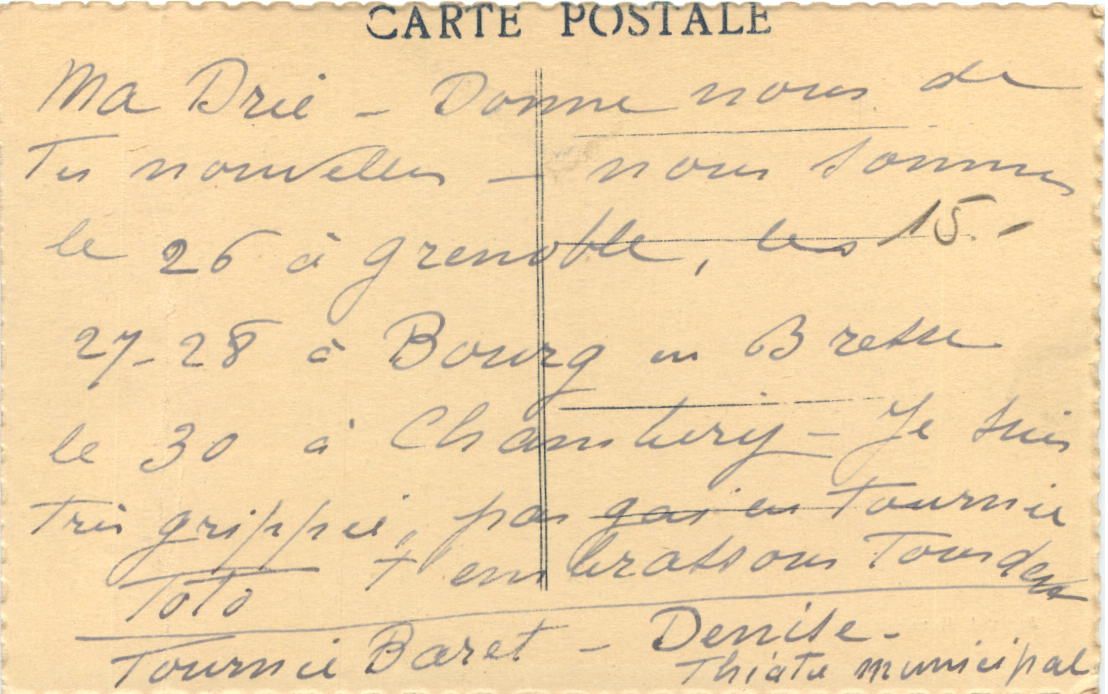 CARTE POSTALE
Ma Drie - Donne nous de
Tes nouvelles - nous sommes
le 26 à grenoble, les 15.-
27-28 à Bourg en Bresse
le 30 à Chambery - Je suis
Très grippée, pas gai en Tournée
Toto + embrassons Tous deux
Tournée Baret - Denise -
Théatre municipal